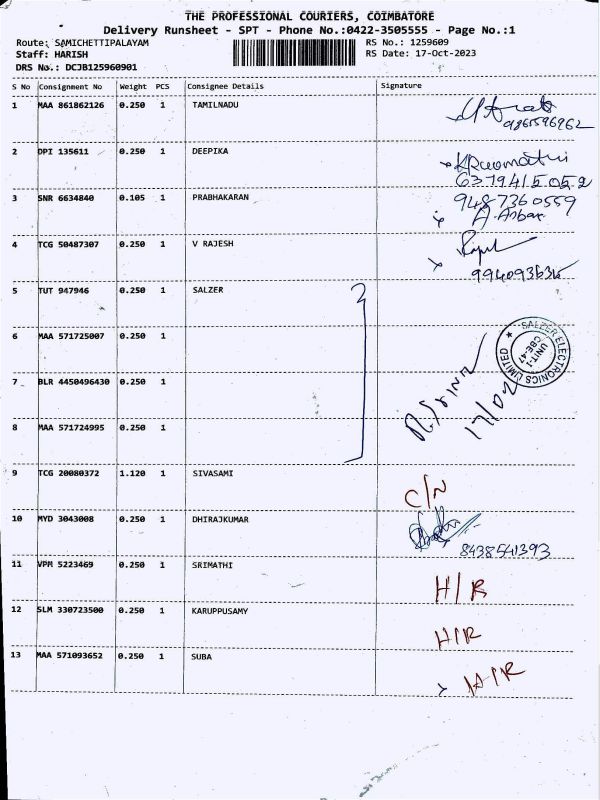 THE PROFESSIONAL COURIERS, COIMBATORE
Delivery Runsheet - SPT - Phone No.:0422-3505555 - Page No.:1
Route: SAMICHETTIPALAYAM RS No.: 1259609
Staff: HARISH RS Date: 17-Oct-2023
DRS No.: DCJB125960901
S No Consignment No Weight PCS Consignee Details Signature
1 MAA 861862126 0.250 1 TAMILNADU
9861596962
2 DPI 135611 0.250 1 DEEPIKA
6379415052
3 SNR 6634840 0.105 1 PRABHAKARAN 9487360559
A. Anbar
4 TCG 50487307 0.250 1 V RAJESH
5 TUT 947946 0.250 1 SALZER
6 MAA 571725007 0.250 1
SALZER ELECTRONICS LIMITED
UNIT-I
CBE-47
7 BLR 4450496430 0.250 1
8 MAA 571724995 0.250 1
9 TCG 20080372 1.120 1 SIVASAMI C/N
10 MYD 3043008 0.250 1 DHIRAJKUMAR
8438541393
11 VPM 5223469 0.250 1 SRIMATHI H/R
12 SLM 330723500 0.250 1 KARUPPUSAMY H/R
13 MAA 571093652 0.250 1 SUBA H/R